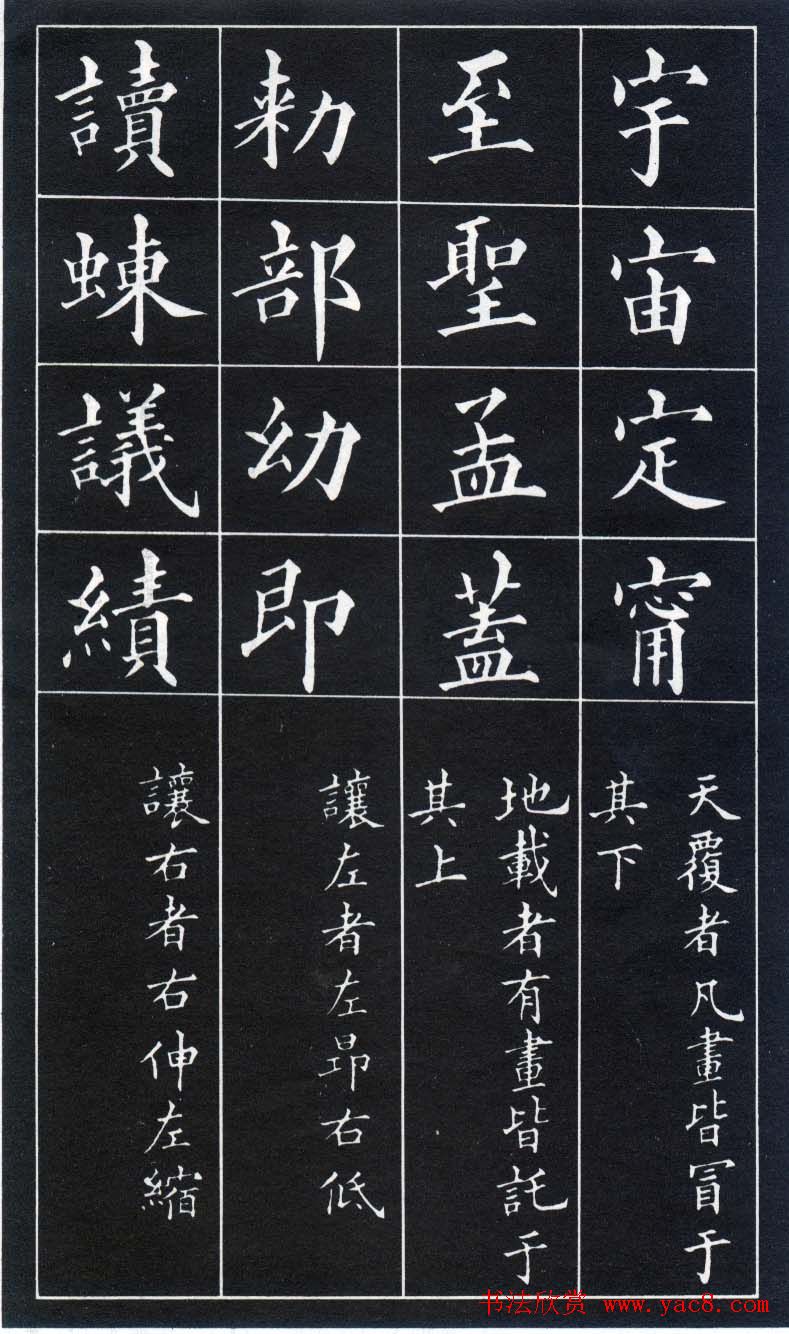 宇宙定甯
天覆者凡畫皆冒于
其下
至聖孟蓋
地載者有畫皆託于
其上
勑部幼即
讓左者左昂右低
讀蝀議績
讓右者右伸左縮
书法欣赏 www.yac8.com